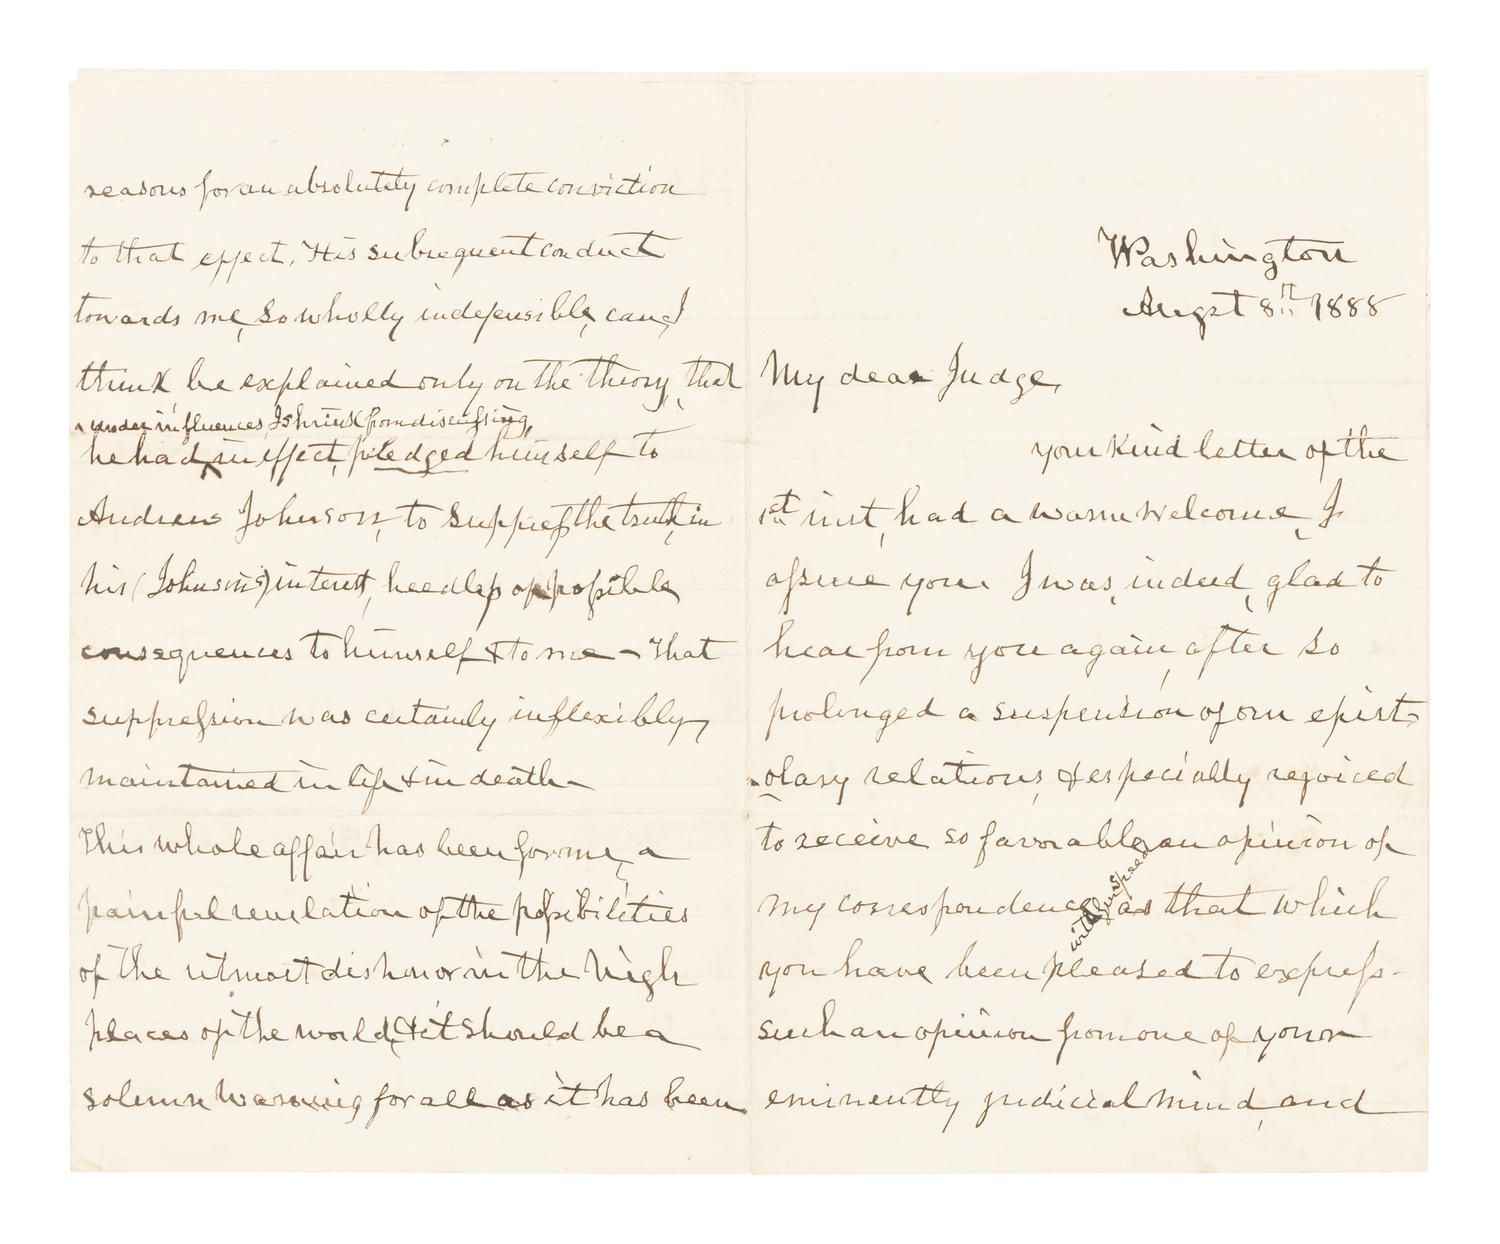 reasons for an absolutely complete conviction
to that effect. His subsequent conduct
towards me, so wholly indefensible, can, I
think be explained only on the theory, that
under influences, I shrink from discussing,
he had in effect, pledged himself to
Andrew Johnson, to suppress the truth, in
his (Johnson's) interest, heedless of possible
consequences to himself & to me – That
suppression was certainly inflexibly,
maintained in life & in death –
This whole affair has been for me, a
painful revelation of the possibilities
of the utmost dishonor in the high
places of the world, & it should be a
solemn warning for all as it has been
Washington
Augst 8th 1888
My dear Judge,
your kind letter of the
1st inst, had a warm welcome, I
assure you. I was, indeed, glad to
hear from you again, after so
prolonged a suspension of our epist-
olary relations, & especially rejoiced
to receive so favorable an opinion of
my correspondence with Speed as that which
you have been pleased to express -
such an opinion from one of your
eminently judicial mind, and